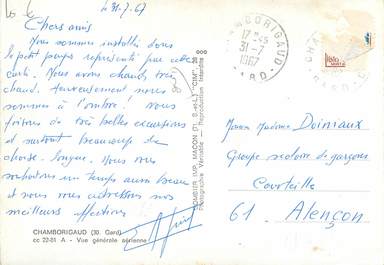 le 31-7-67
Chers amis
Nous sommes installés dans
le petit pays représenté par cette
carte. Nous avons chaud, très
chaud. Heureusement nous
sommes à l'ombre! Nous
faisons de très belles excursions
et surtout beaucoup de
chaise-longue. Nous vous
souhaitons un temps aussi beau
et nous vous adressons nos
meilleurs affections
CHAMBORIGAUD (30. Gard)
cc 22-81 A - Vue générale aérienne
COMBIER IMP. MACON (71. S.-et-L.) "CIM"
Photographie Véritable - Reproduction Interdite
CHAMBORIGAUD
17-
31-7
1967
GARD
Monsieur Madame Doiniaux
Groupe scolaire de garçons
Courteille
61 Alençon